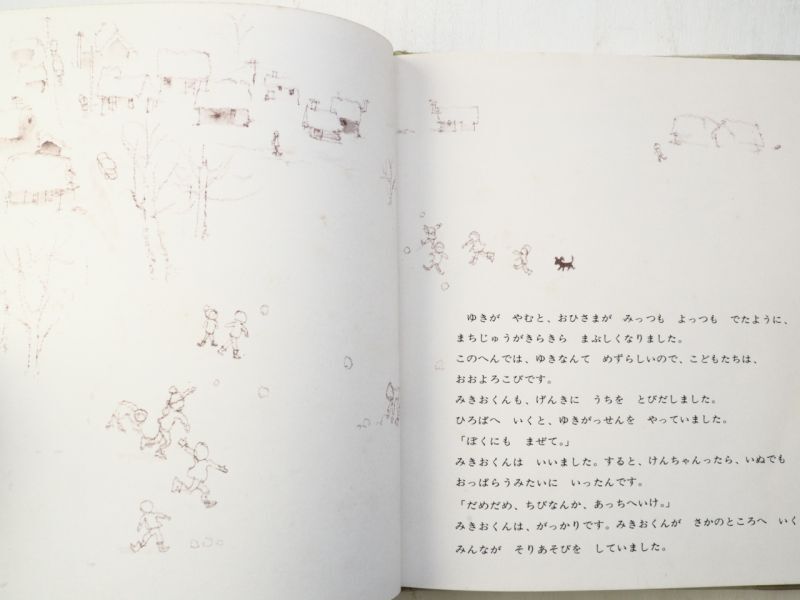 ゆきが　やむと、おひさまが　みっつも　よっつも　でたように、
まちじゅうがきらきら　まぶしくなりました。
このへんでは、ゆきなんて　めずらしいので、こどもたちは、
おおよろこびです。
みきおくんも、げんきに　うちを　とびだしました。
ひろばへ　いくと、ゆきがっせんを　やっていました。
「ぼくにも　まぜて。」
みきおくんは　いいました。すると、けんちゃんったら、いぬでも
おっぱらうみたいに　いったんです。
「だめだめ、ちびなんか、あっちへいけ。」
みきおくんは、がっかりです。みきおくんが　さかのところへ　いく
みんなが　そりあそびを　していました。